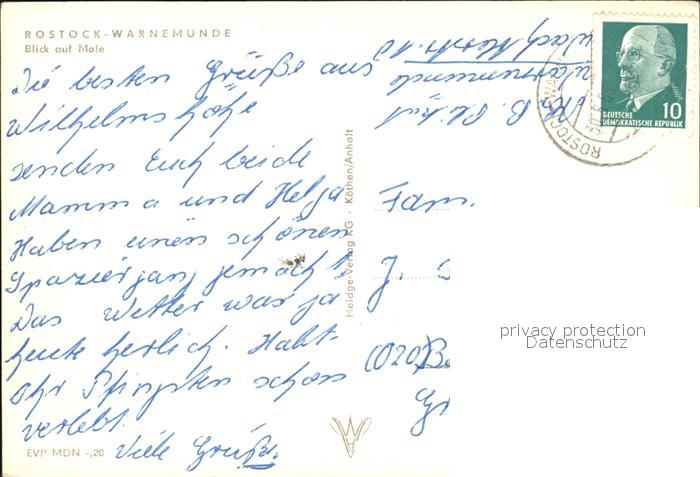 ROSTOCK-WARNEMÜNDE
Blick auf Mole
Die besten Grüße aus
Wilhelmshöhe
senden Euch beide
Mamma und Helga
Haben einen schönen
Spaziergang gemacht.
Das Wetter war ja
heute herlich. Habt
Ihr Pfingsten schon
verlebt.
Viele Grüße.
EVP MDN -,20
Heldge-Verlag KG · Köthen/Anhalt
Warnemünde
Fam.
J.
(020)
DEUTSCHE
DEMOKRATISCHE REPUBLIK
10
ROSTOCK
privacy protection
Datenschutz